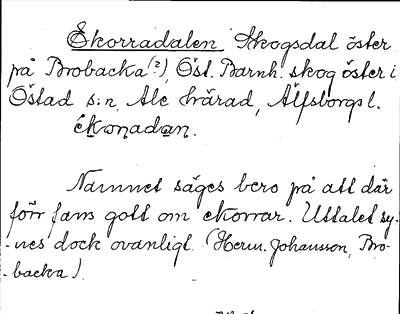 Ekorradalen Skogsdal öster
på Brobacka (?), Öst. Barnh. skog öster i
Östad s:n, Ale härad, Älfsborgs l.
Namnet säges bero på att där
förr fans gott om ekorrar. Uttalet sy-
-nes dock ovanligt. (Herm. Johansson, Bro-
-backa).